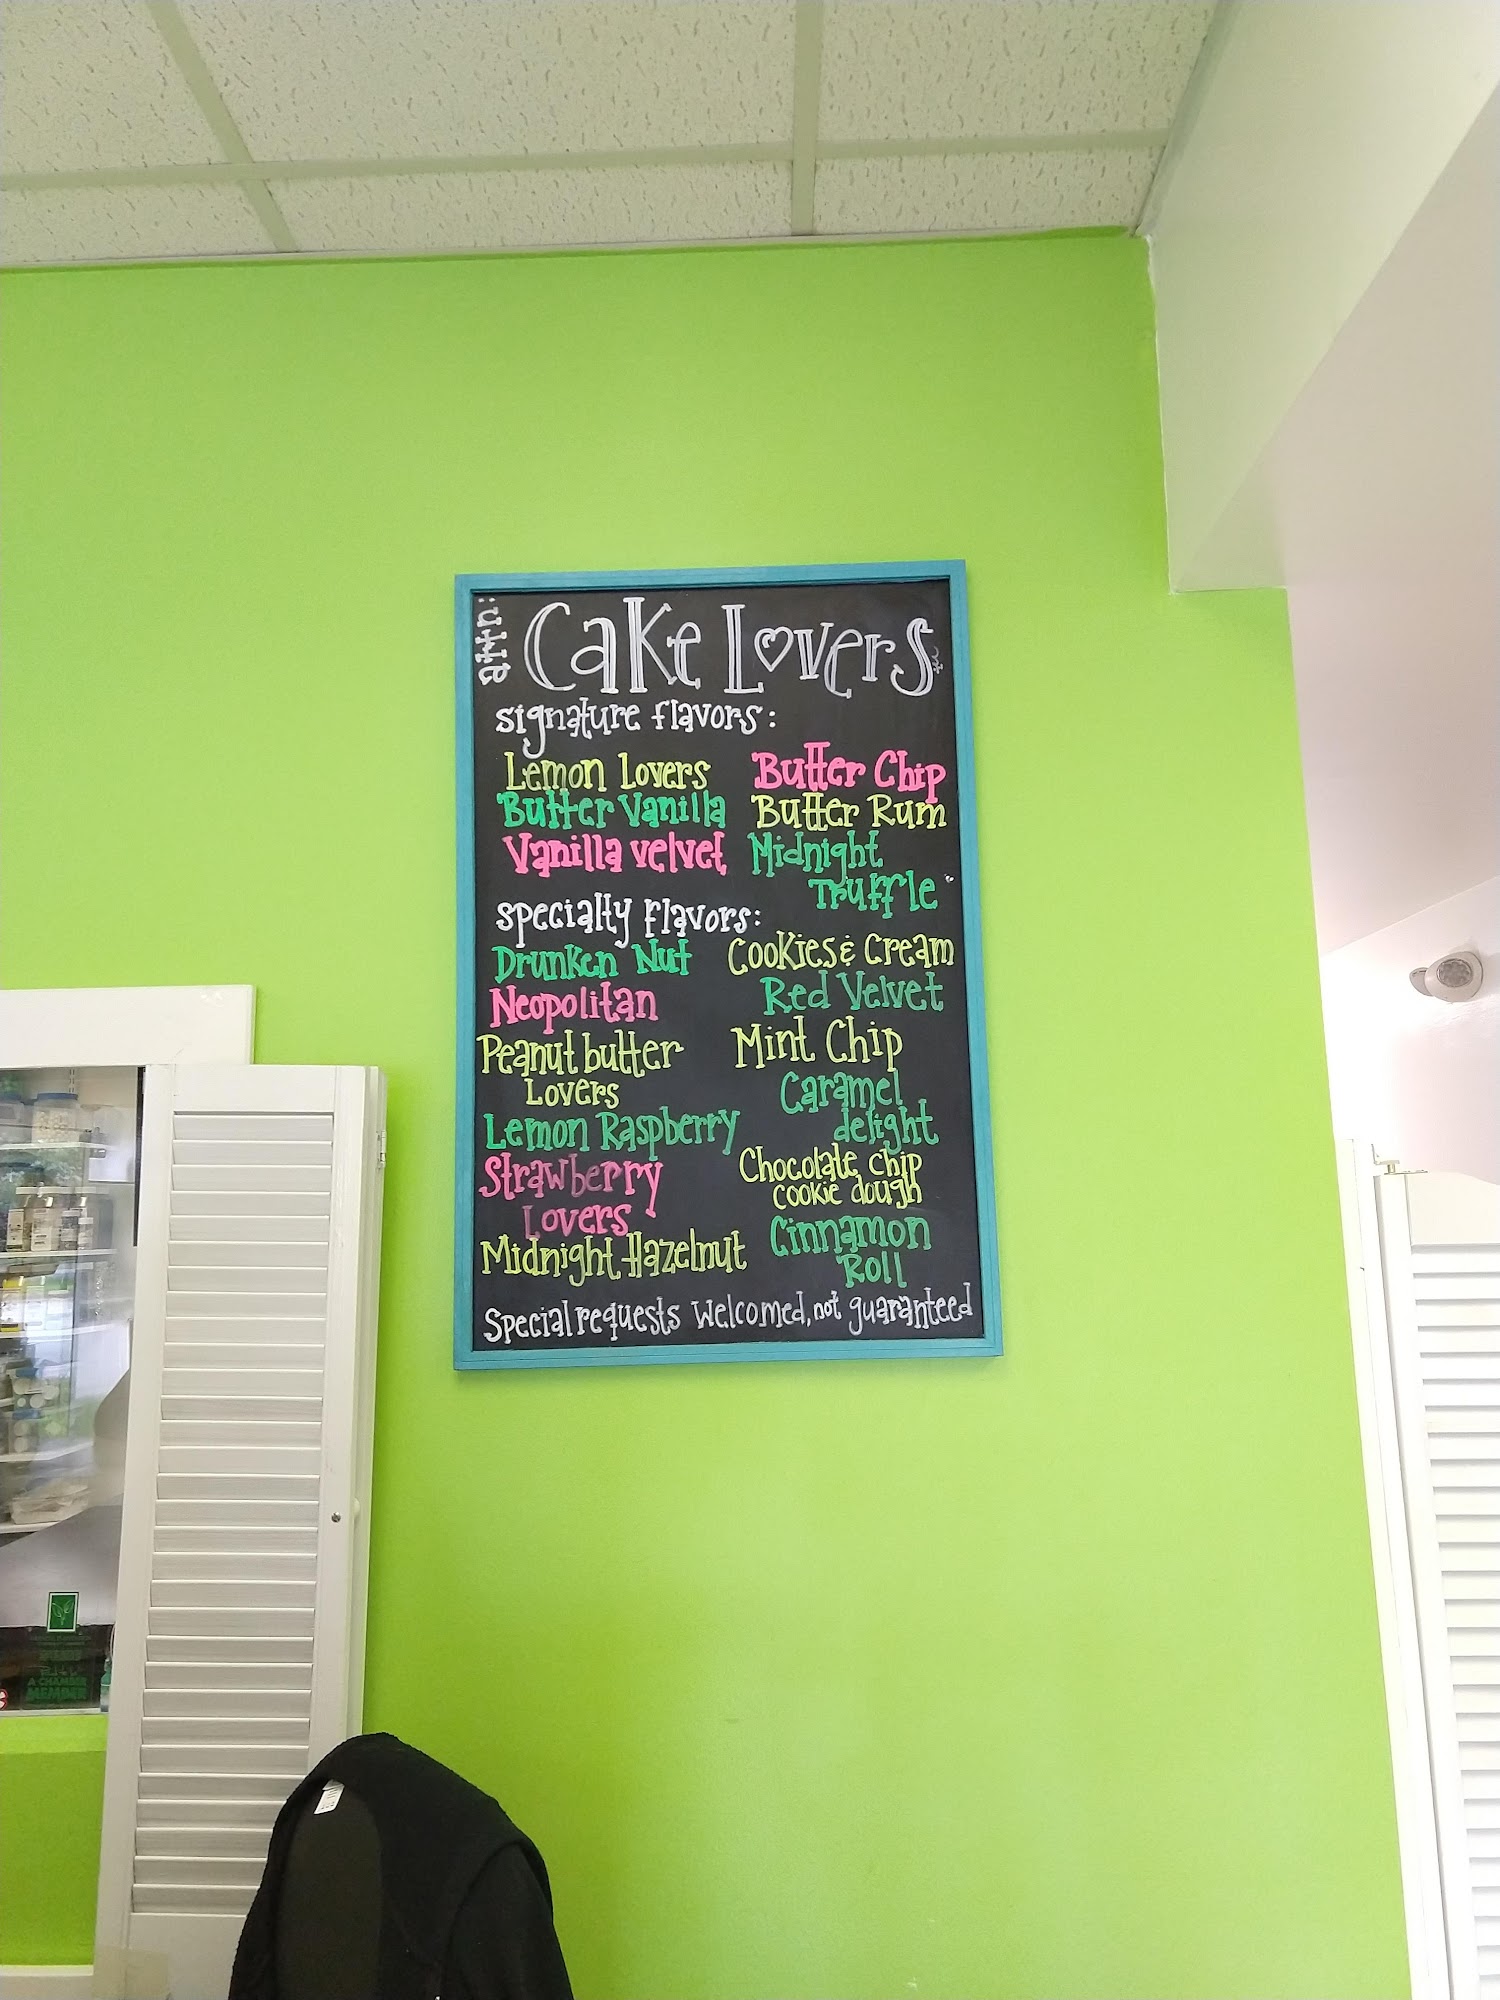 attn:
Cake Lovers
signature flavors:
Lemon Lovers
Butter Vanilla
Vanilla velvet
Butter Chip
Butter Rum
Midnight
Truffle
specialty flavors:
Drunken Nut
Neopolitan
Peanut butter
Lovers
Lemon Raspberry
Strawberry
Lovers
Midnight Hazelnut
Cookies & Cream
Red Velvet
Mint Chip
Caramel
delight
Chocolate chip
cookie dough
Cinnamon
Roll
Special requests welcomed, not guaranteed
A CHAMBER
MEMBER